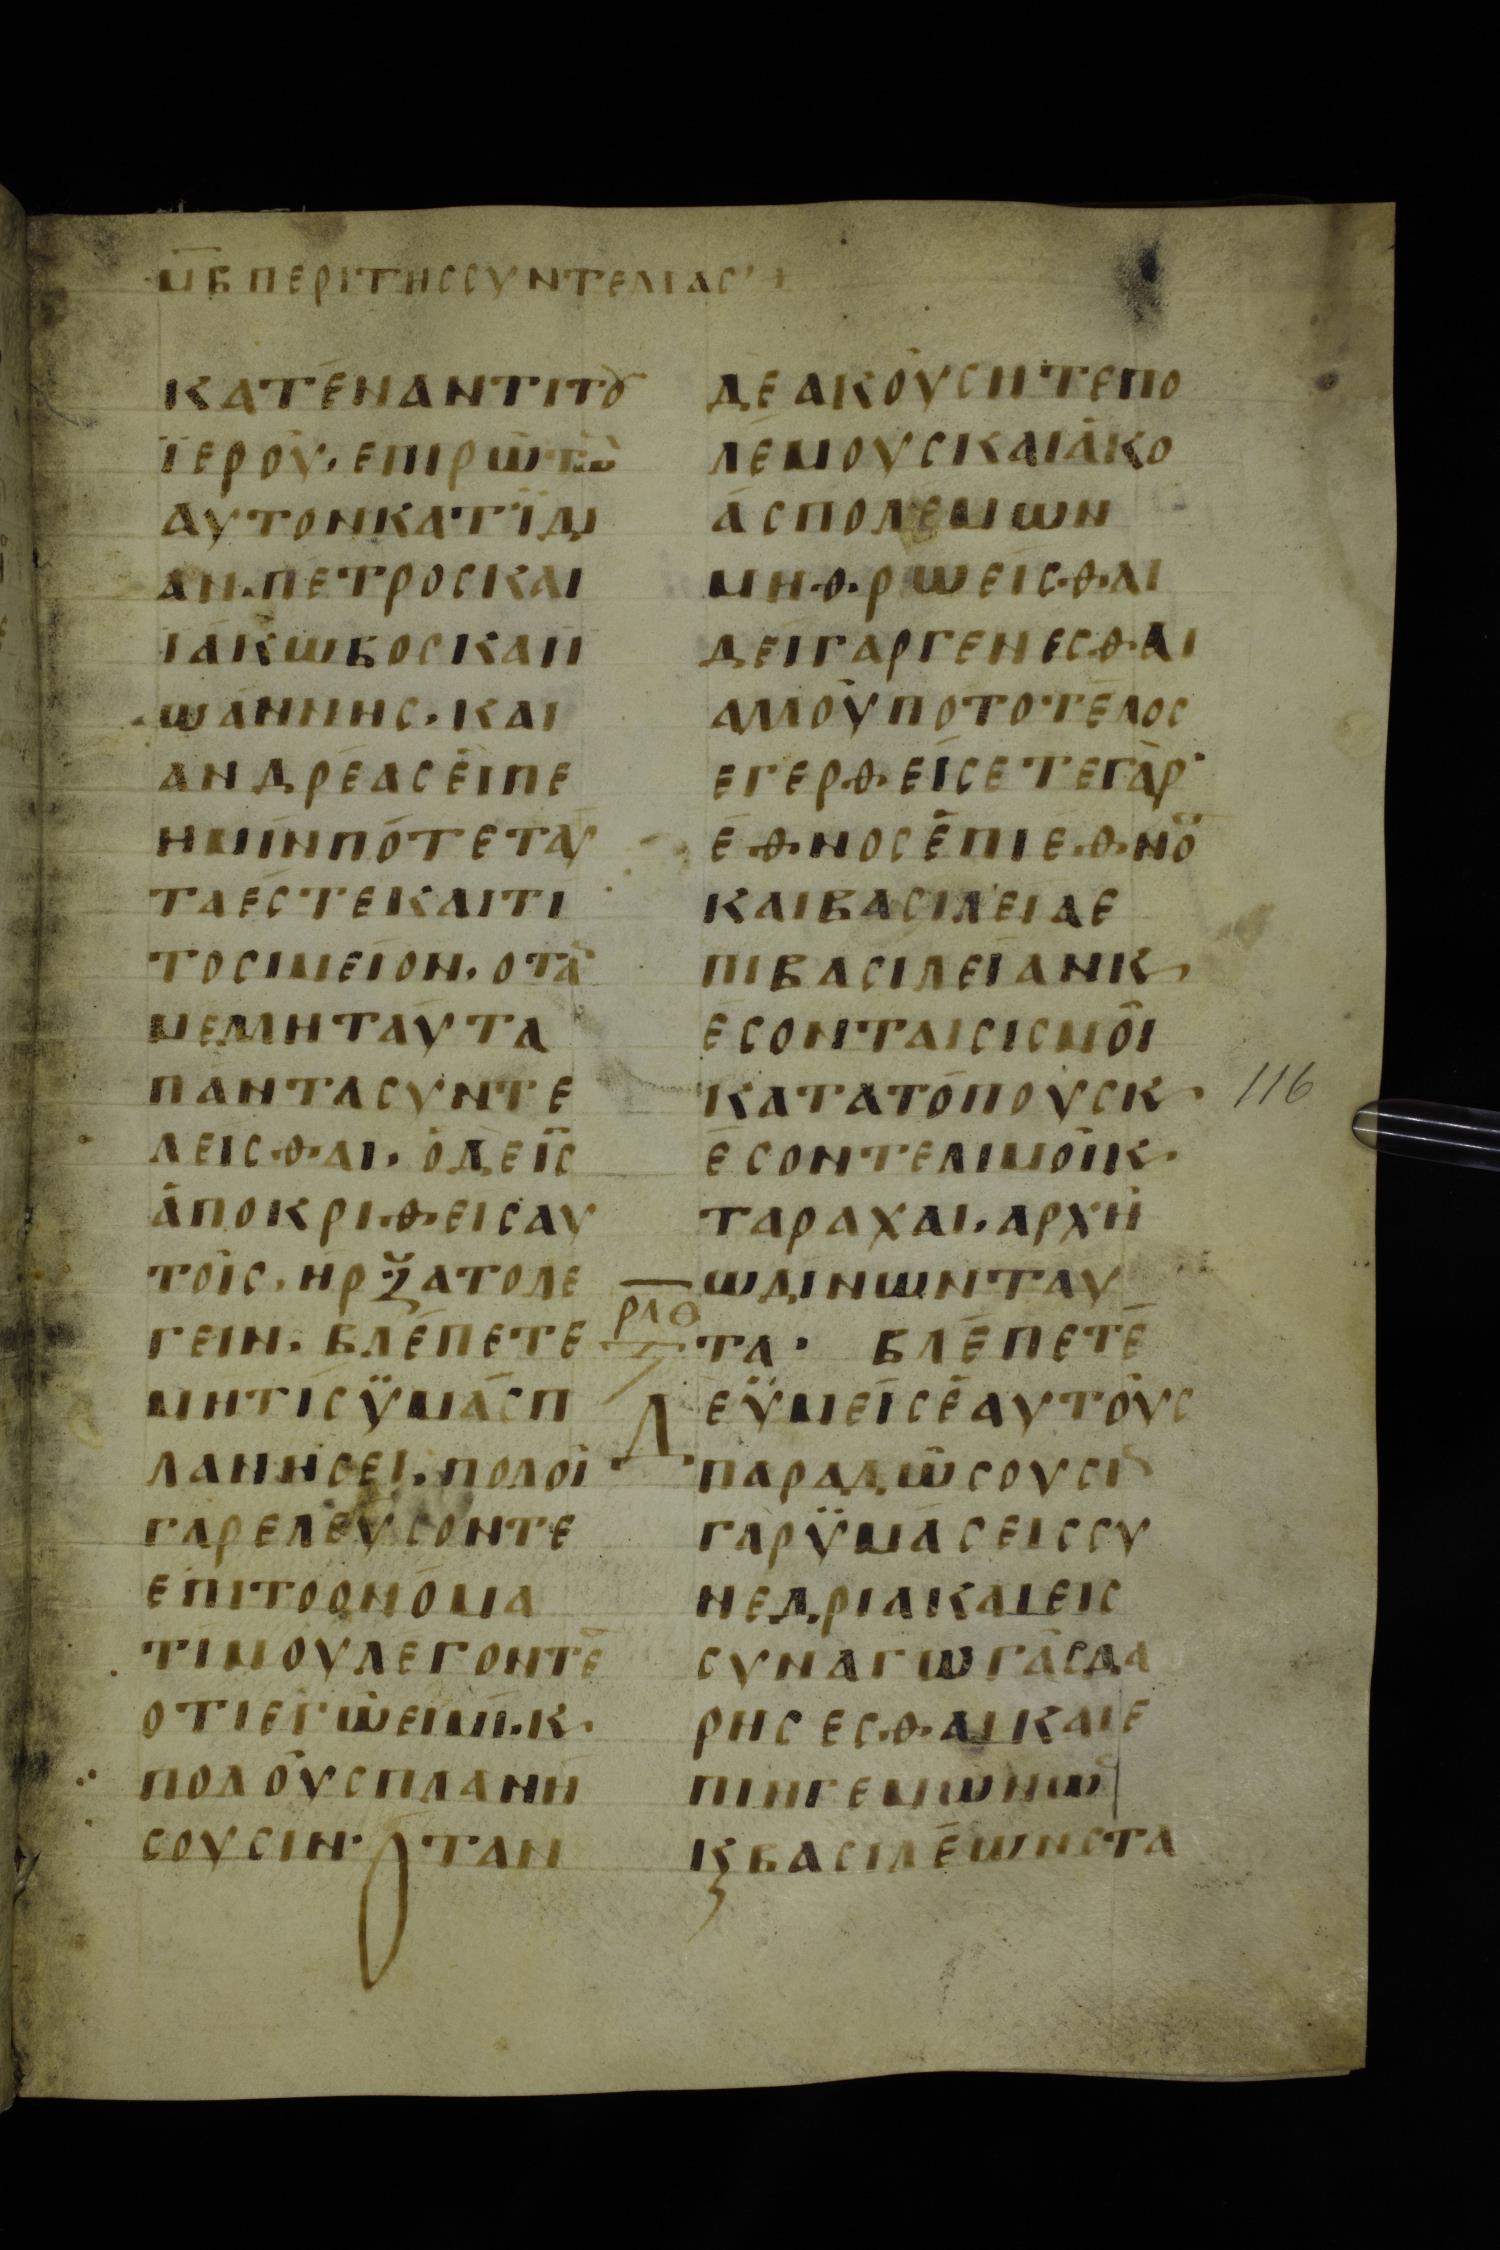 μβ περιτησσυντελιασ
κατέναντιτȣ
ϊερού. επιρωτῶ
αυτονκατϊδι
αν. πέτροσκαι
ϊάκωβοσκαιϊ
ωάννησ. και
ανδρέασειπε
ημίνπότεταυ
ταέστεκαιτι
τοσιμείον. οτα̅
μελλητάυτα
πάντασυντε
λεισθαι. όδεῒσ
αποκριθεισαυ
τοίσ. ηρξατολε
γειν. βλέπετε
μητίσϋμάσπ
λανησει. πολοί
γαρελέυσοντε
επιτοονόμα
τιμουλέγοντε
οτιεγώειμι. κ.
πολόυσπλανή
σουσιν. Οταν
δεακούσητεπο
λέμουσκαιάκο
άσπολέμων
μηθρωεισθαι
δείγαργενεσθαι
αλλούποτοτέλοσ
εγερθείσετεγὰρ
έθνοσέπιέθνο
καιβασιλείαε
πιβασιλείανκ
έσονταισισμοί
κατατόπουσκ
έσοντελιμοίκ
ταραχαι. αρχή
ωδίνωνταυ
ρλθ
τα. βλέπετέ
Δ
εϋμείσέαυτόυσ
παραδώσουσι
γαρϋμάσεισσυ
νεδριακαιεισ
συναγωγάσδα
ρησεσθαικαιε
πιηγεμωνω
κ βασιλέωνστα
116